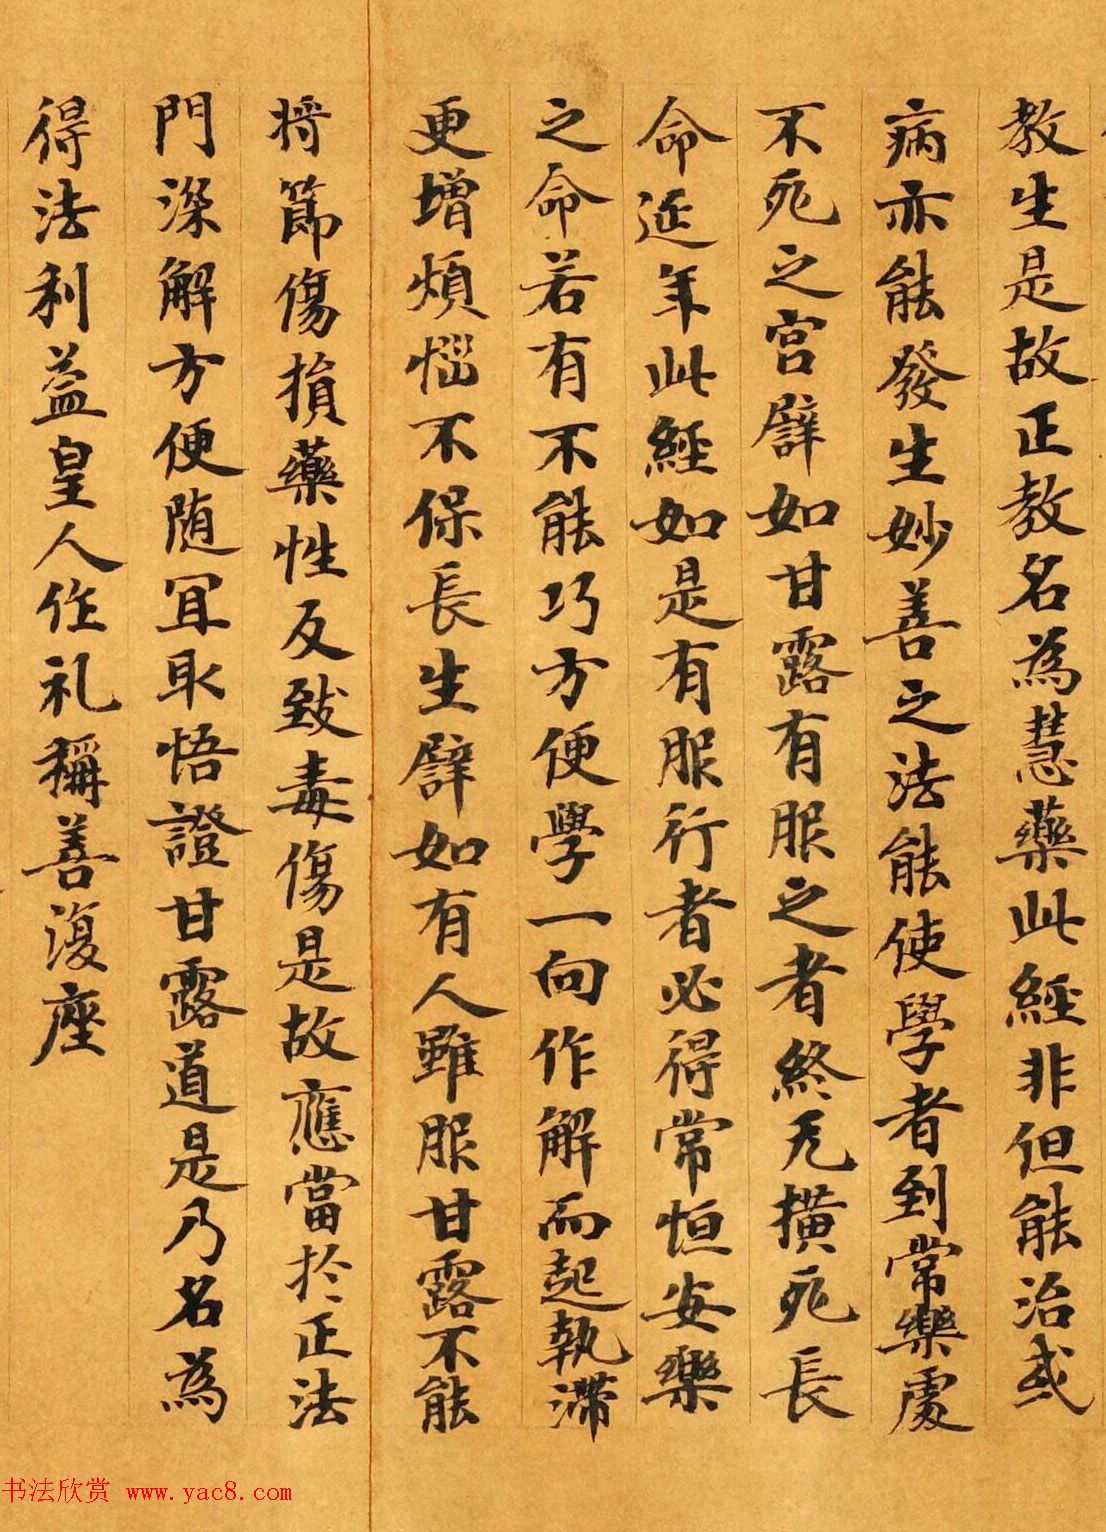 教生是故正教名為慧藥此經非但能治或
病亦能發生妙善之法能使學者到常樂處
不死之宮譬如甘露有服之者終无横死長
命延年此經如是有服行者必得常恒安樂
之命若有不能巧方便學一向作解而起執滯
更增煩惱不保長生譬如有人雖服甘露不能
將節傷損藥性反致毒傷是故應當於正法
門深解方便随冝取悟證甘露道是乃名為
得法利益皇人作礼稱善復座
书法欣赏 www.yac8.com